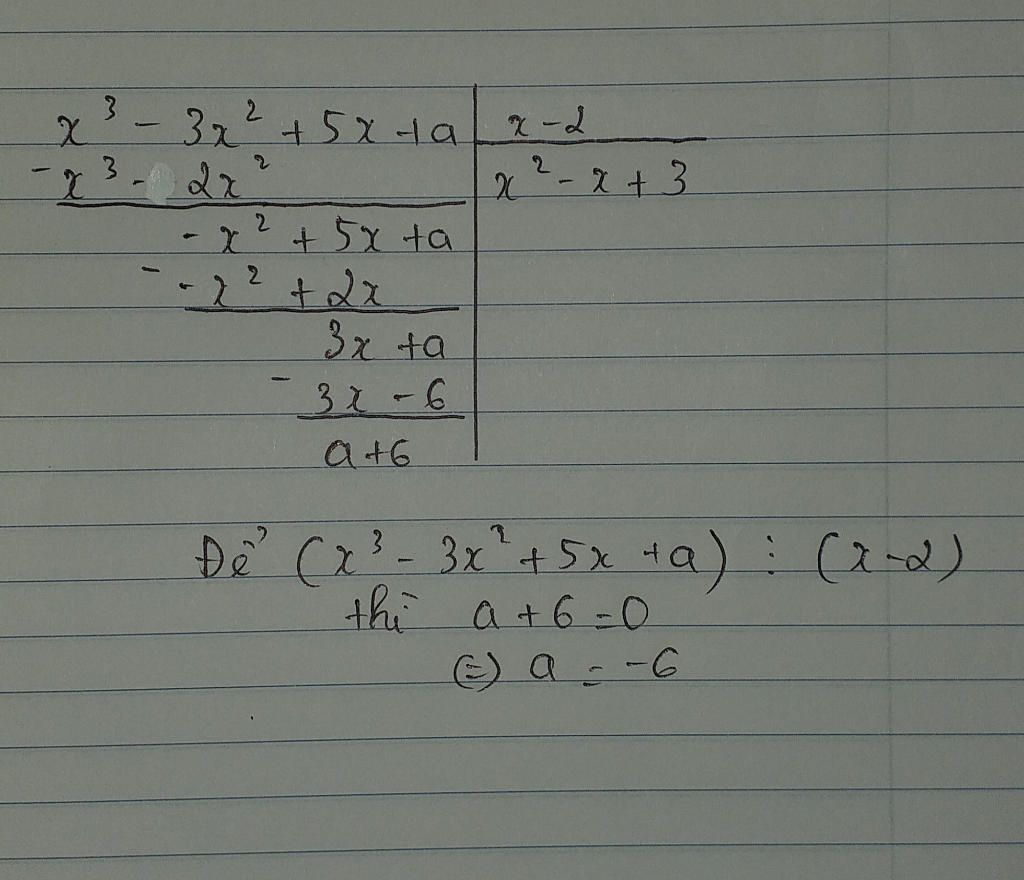 x³ - 3x² + 5x + a | x - 2
- x³ - 2x² | x² - x + 3
- x² + 5x + a
- - x² + 2x
3x + a
- 3x - 6
a + 6
Để (x³ - 3x² + 5x + a) ⋮ (x - 2)
thì a + 6 = 0
⇔ a = -6